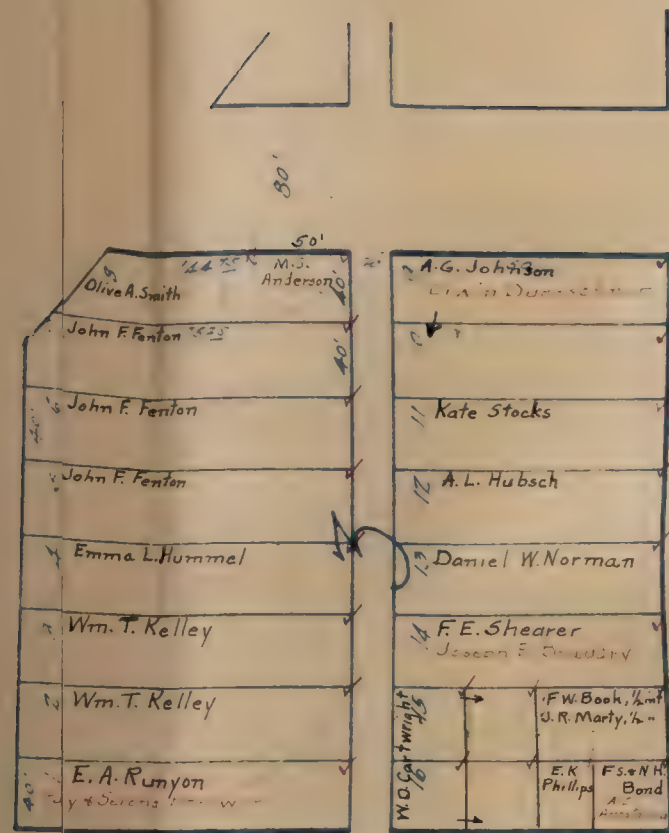 80'
50'
Olive A. Smith
M.J.
Anderson
40'
John F. Fenton
40'
John F. Fenton
John F. Fenton
Emma L. Hummel
Wm. T. Kelley
2 Wm. T. Kelley
40' E. A. Runyon
A.G. Johnson
11 Kate Stocks
12 A.L. Hubsch
13 Daniel W. Norman
14 F.E. Shearer
W.D. Cartwright
15
16
F W. Book, ½ int
J.R. Marty, ½ "
E.K
Phillips
F S. & N H.
Bond